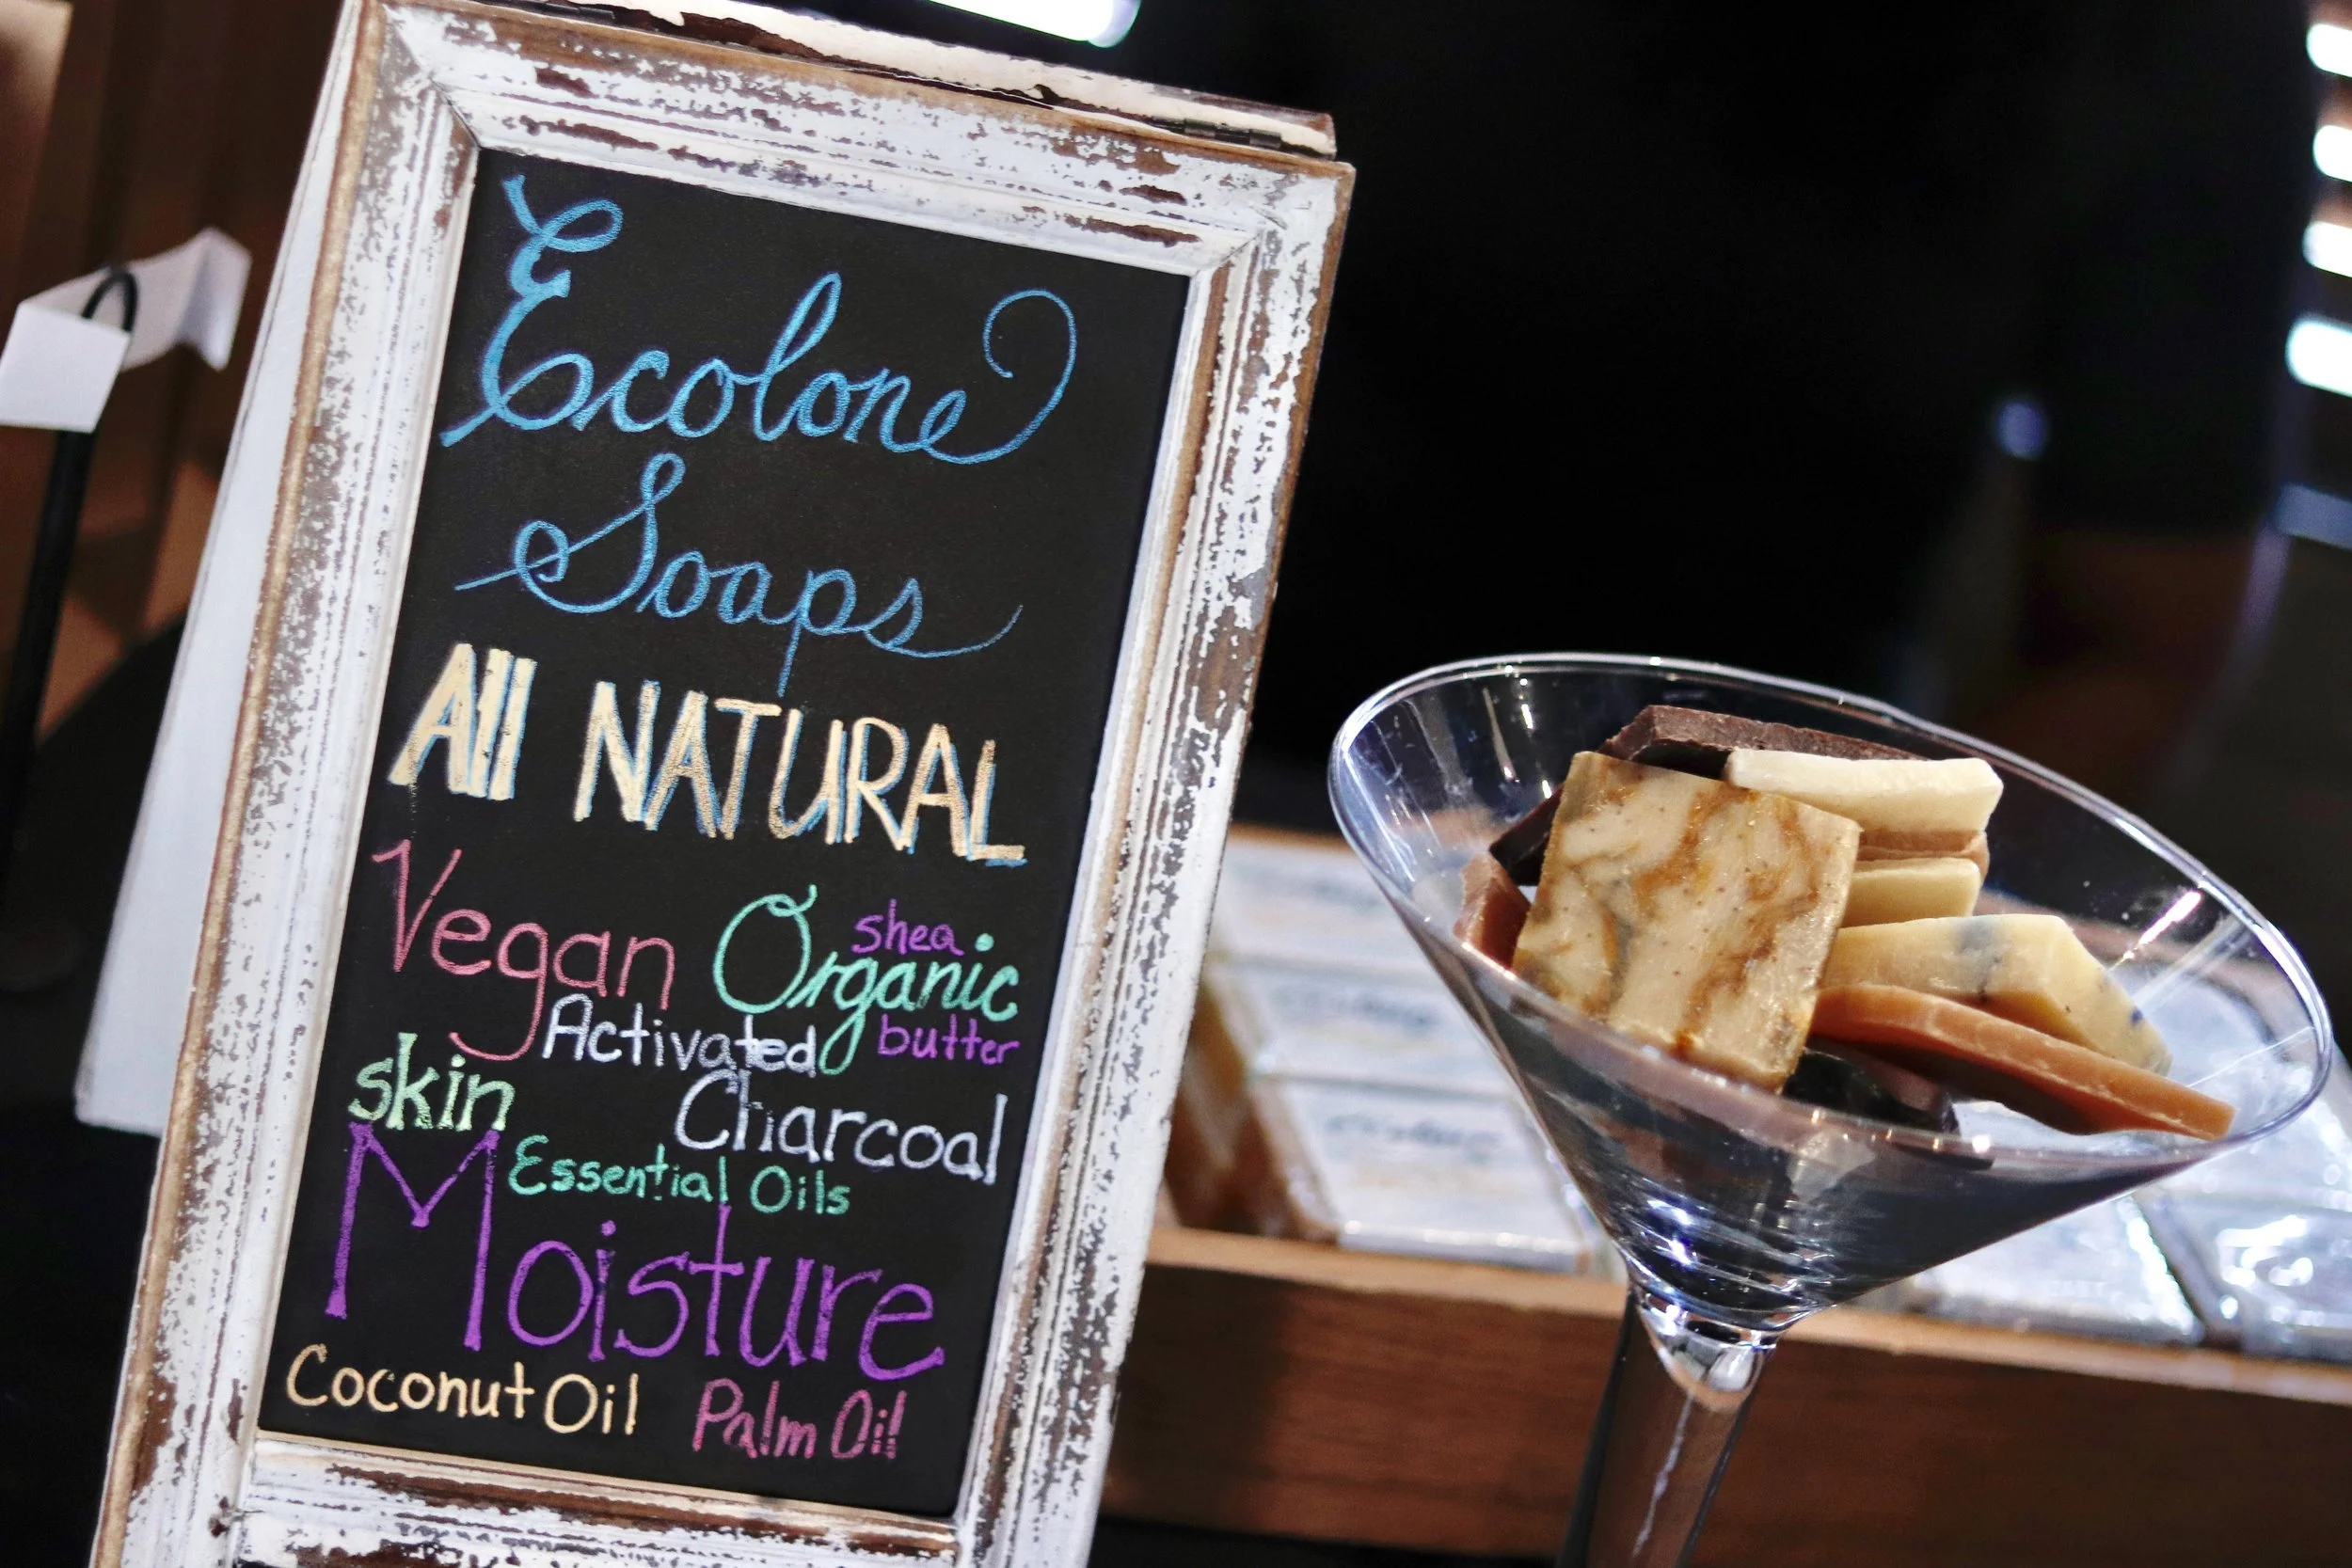 Ecolone
Soaps
All NATURAL
Vegan Organic
shea
butter
Activated
Charcoal
skin
Moisture
Essential Oils
Coconut Oil
Palm Oil